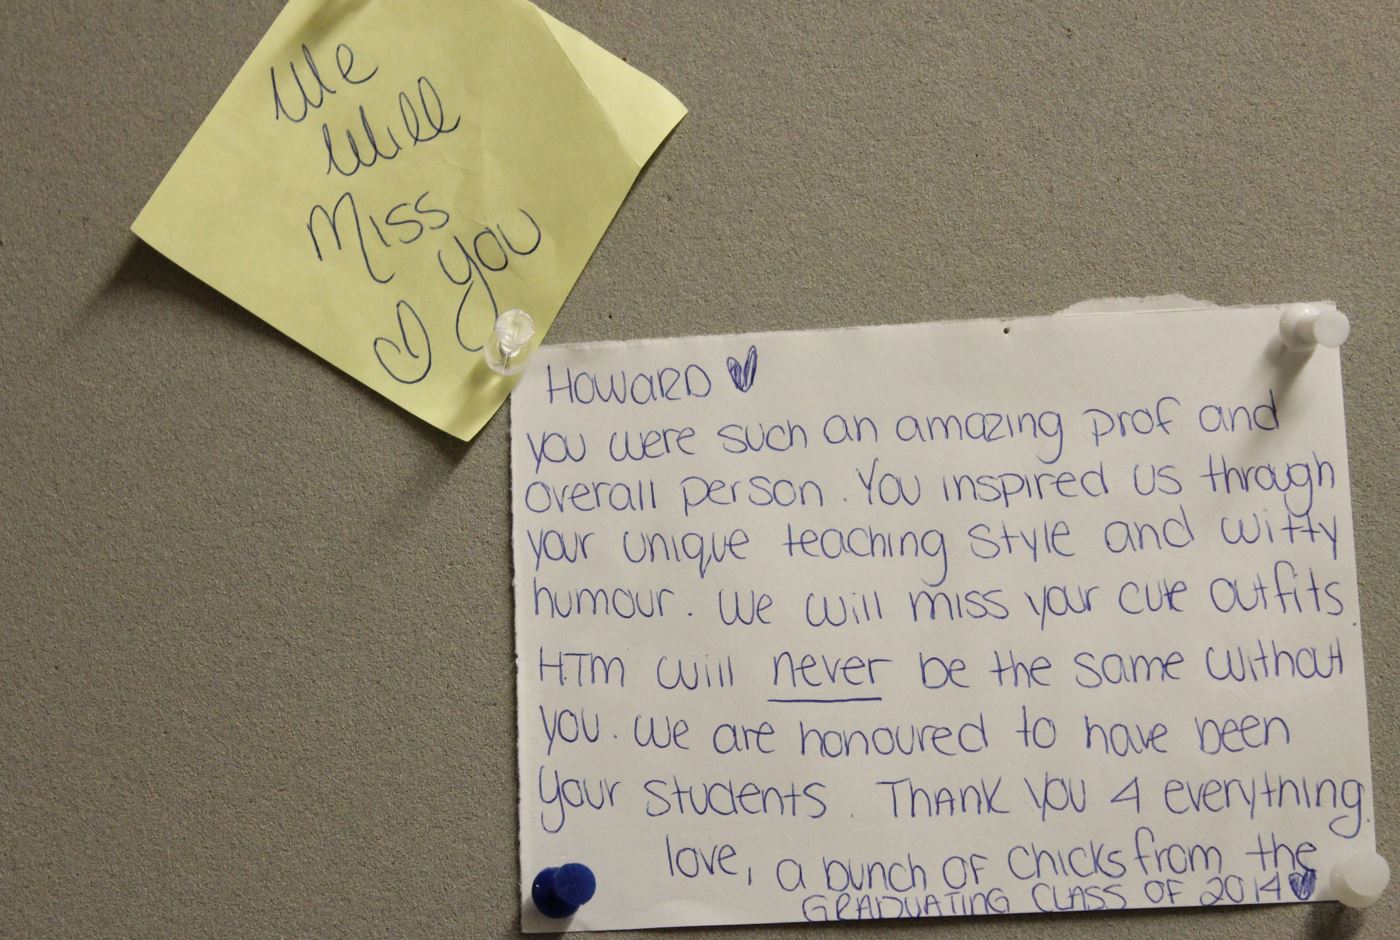 We
Will
Miss
You
HOWARD
you were such an amazing prof and
overall person. You inspired us through
your unique teaching style and witty
humour. We will miss your cute outfits.
HTM will never be the same without
you. We are honoured to have been
your students. Thank you 4 everything.
love, a bunch of chicks from the
GRADUATING CLASS OF 2014